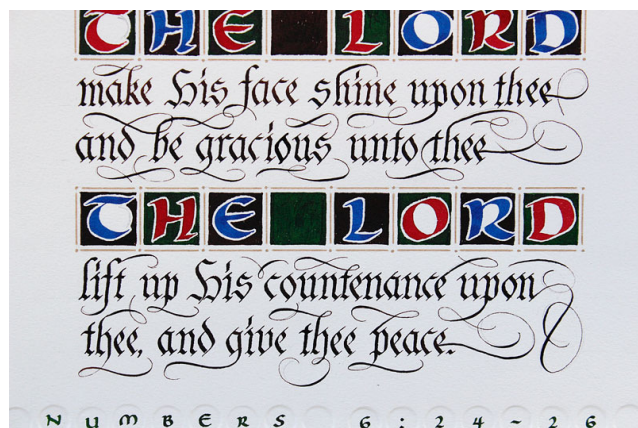 THE LORD
make His face shine upon thee
and be gracious unto thee
THE LORD
lift up His countenance upon
thee, and give thee peace.
NUMBERS 6:24-26